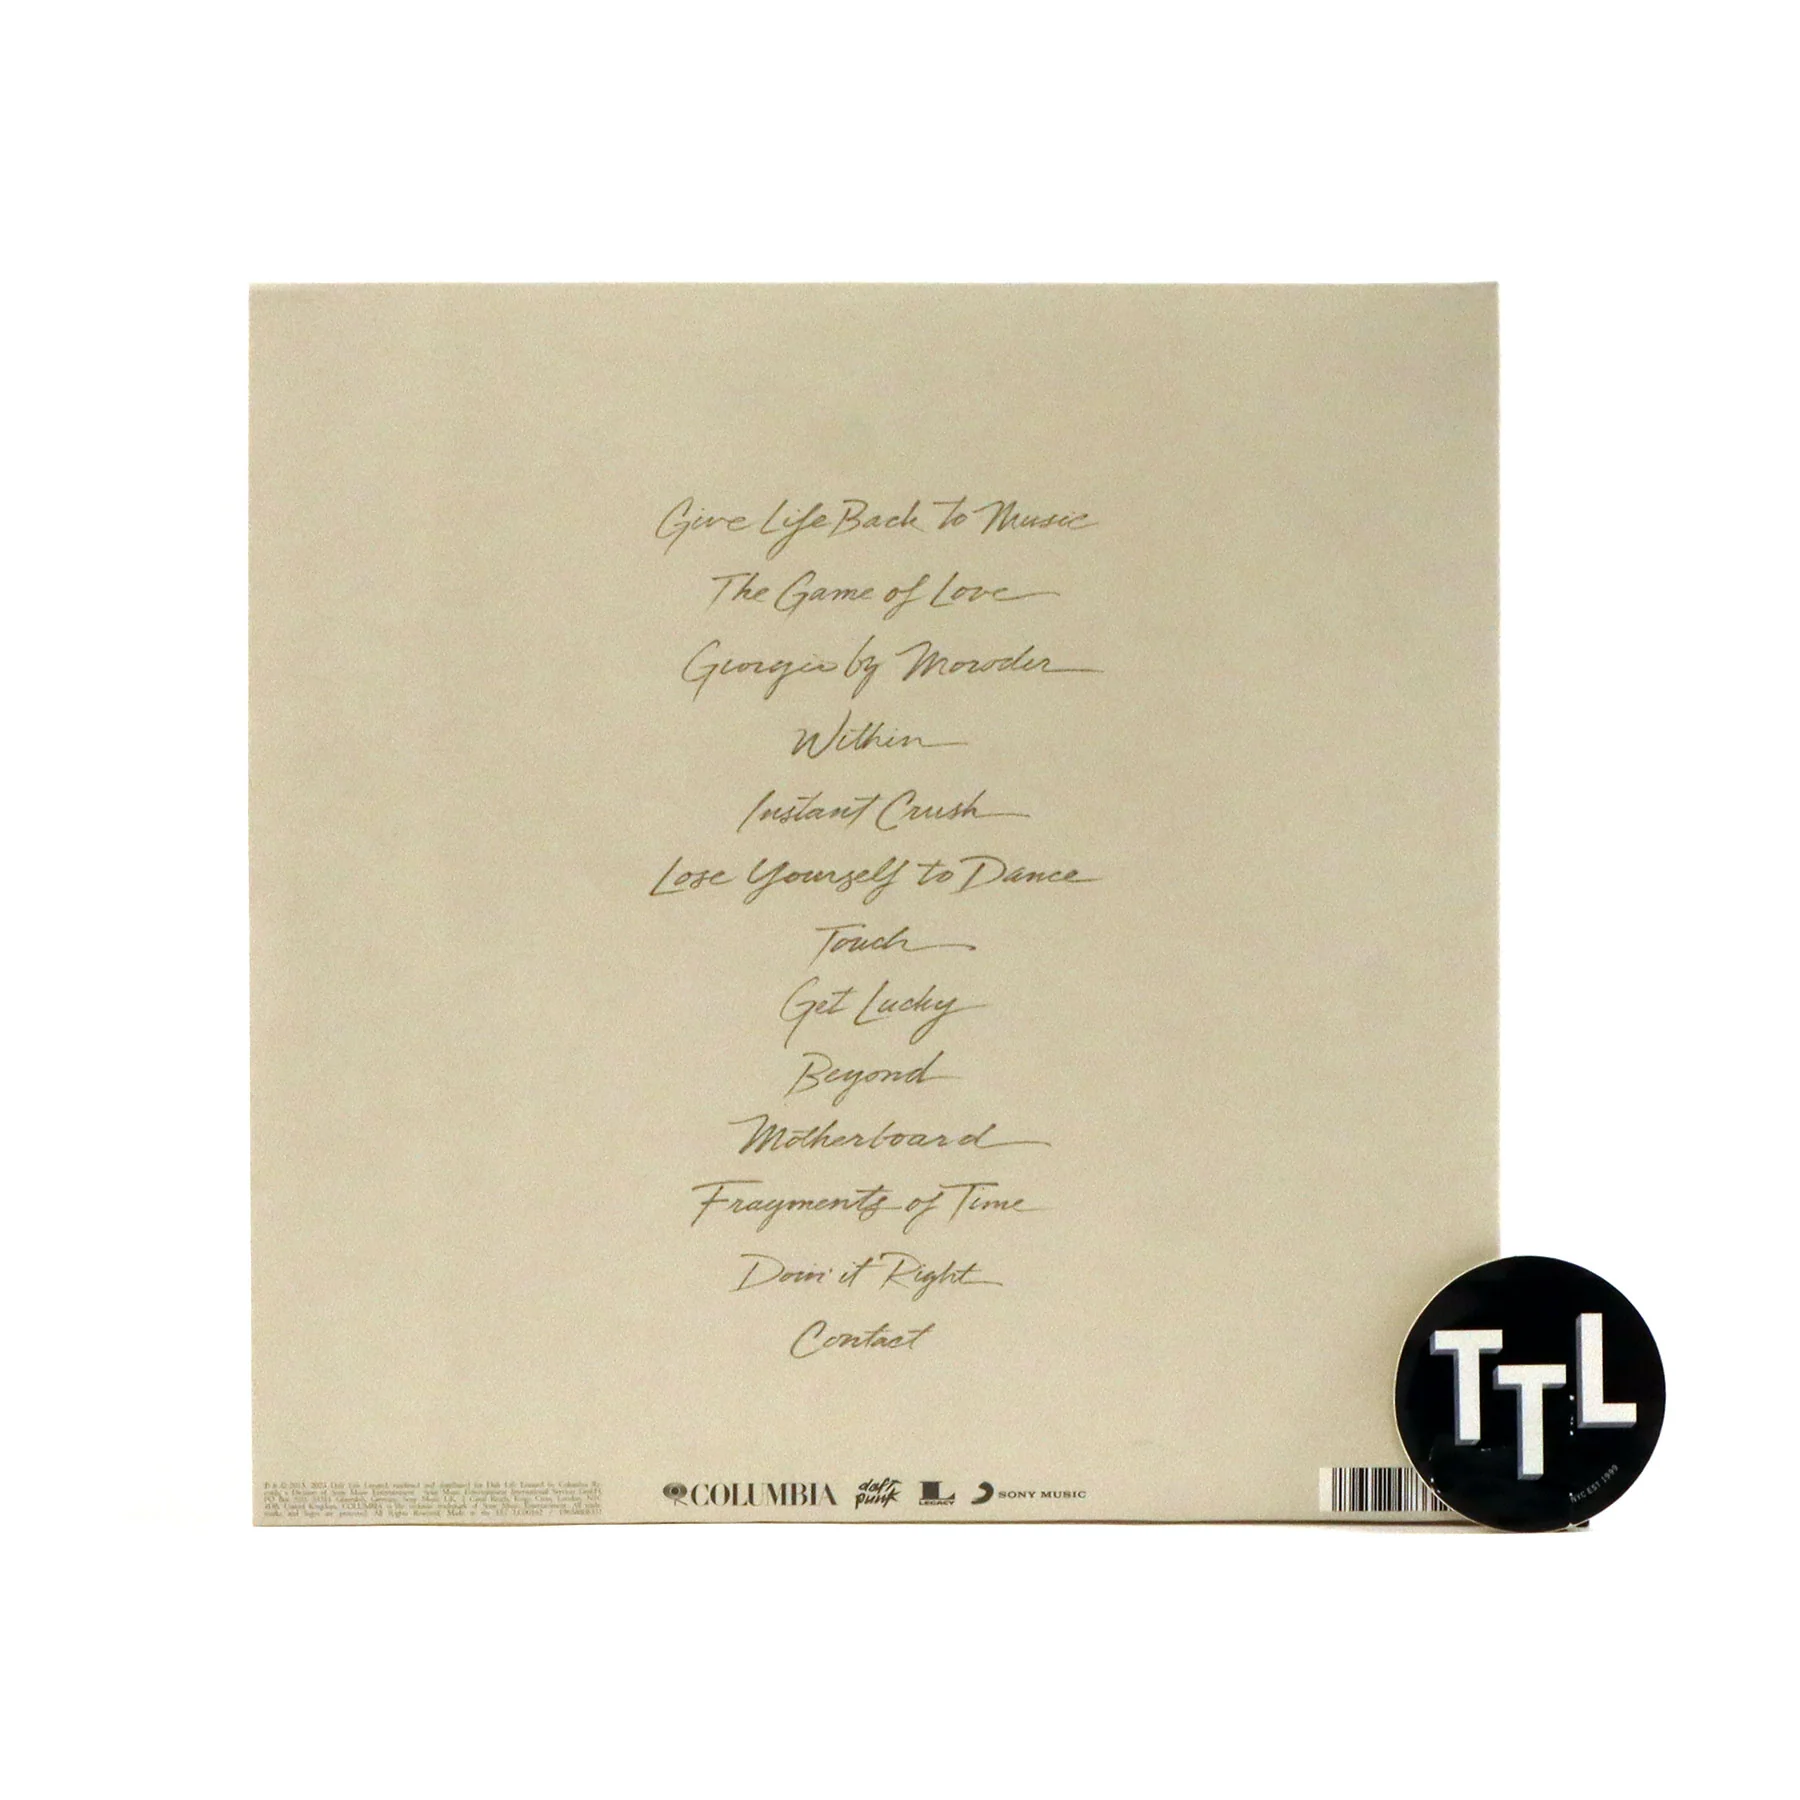 Give Life Back to Music
The Game of Love
Giorgio by Moroder
Within
Instant Crush
Lose Yourself to Dance
Touch
Get Lucky
Beyond
Motherboard
Fragments of Time
Doin' it Right
Contact
COLUMBIA
daft punk
L
LEGACY
SONY MUSIC
TTL
NYC EST 1999